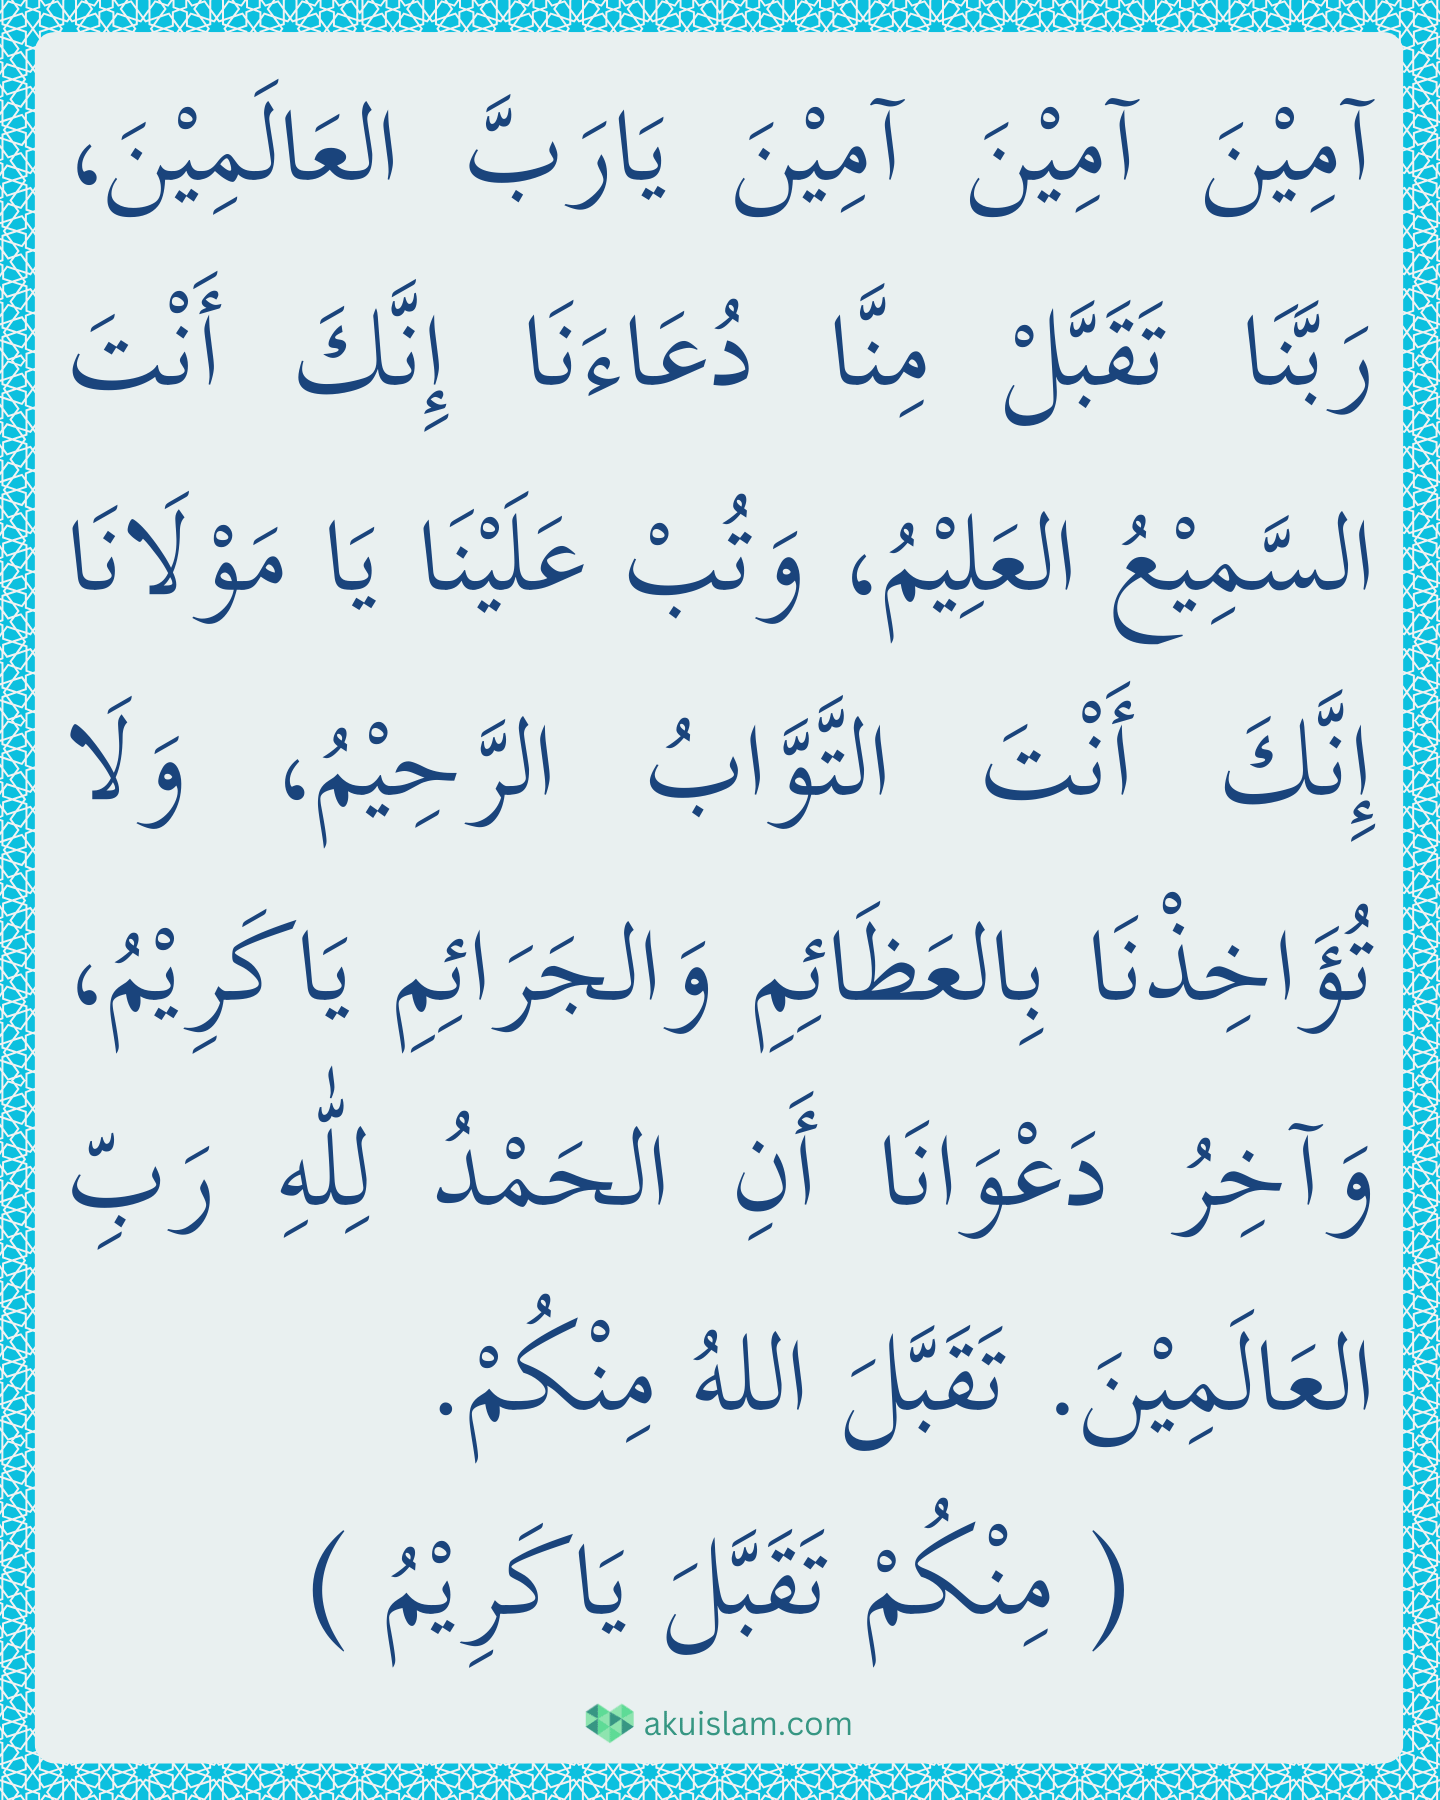 آمِيْنَ آمِيْنَ آمِيْنَ يَارَبَّ العَالَمِيْنَ،
رَبَّنَا تَقَبَّلْ مِنَّا دُعَاءَنَا إِنَّكَ أَنْتَ
السَّمِيْعُ العَلِيْمُ، وَتُبْ عَلَيْنَا يَا مَوْلَانَا
إِنَّكَ أَنْتَ التَّوَّابُ الرَّحِيْمُ، وَلَا
تُؤَاخِذْنَا بِالعَظَائِمِ وَالجَرَائِمِ يَاكَرِيْمُ،
وَآخِرُ دَعْوَانَا أَنِ الحَمْدُ لِلّٰهِ رَبِّ
العَالَمِيْنَ. تَقَبَّلَ اللهُ مِنْكُمْ.
( مِنْكُمْ تَقَبَّلَ يَاكَرِيْمُ )
akuislam.com